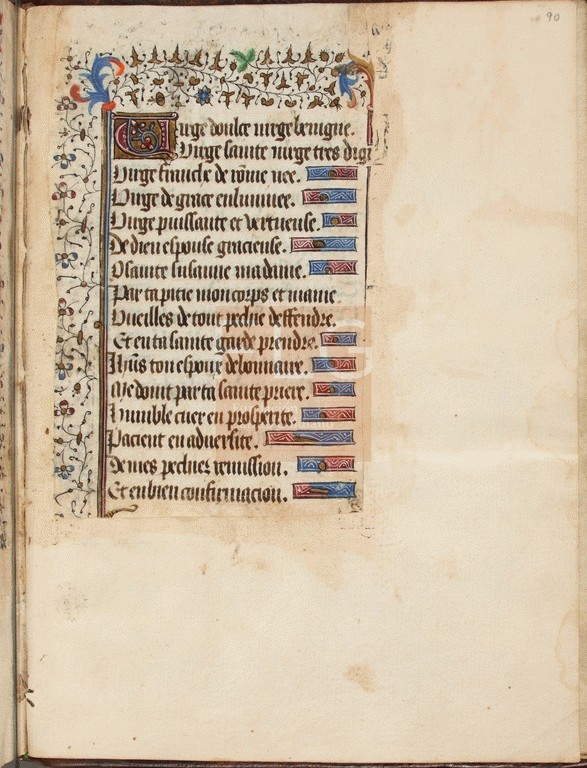 90
Uirge doulce uirge benigne.
Uirge sainte uirge tres dign
Uirge franche de rõme nee.
Uirge de grace enluminee.
Uirge puissante et vertueuse.
De dieu espouse gracieuse.
O sainte susanne ma dame.
Par ta pitie mon corps et mame.
Vueilles de tout pechie deffendre.
Et en ta sainte garde prendre.
Ihũs ton espoux debonnaire.
Me doint par ta sainte priere.
Humble cuer en prosperite.
Pacient en aduersite.
De mes pechiez remission.
Et en bien confirmacion.